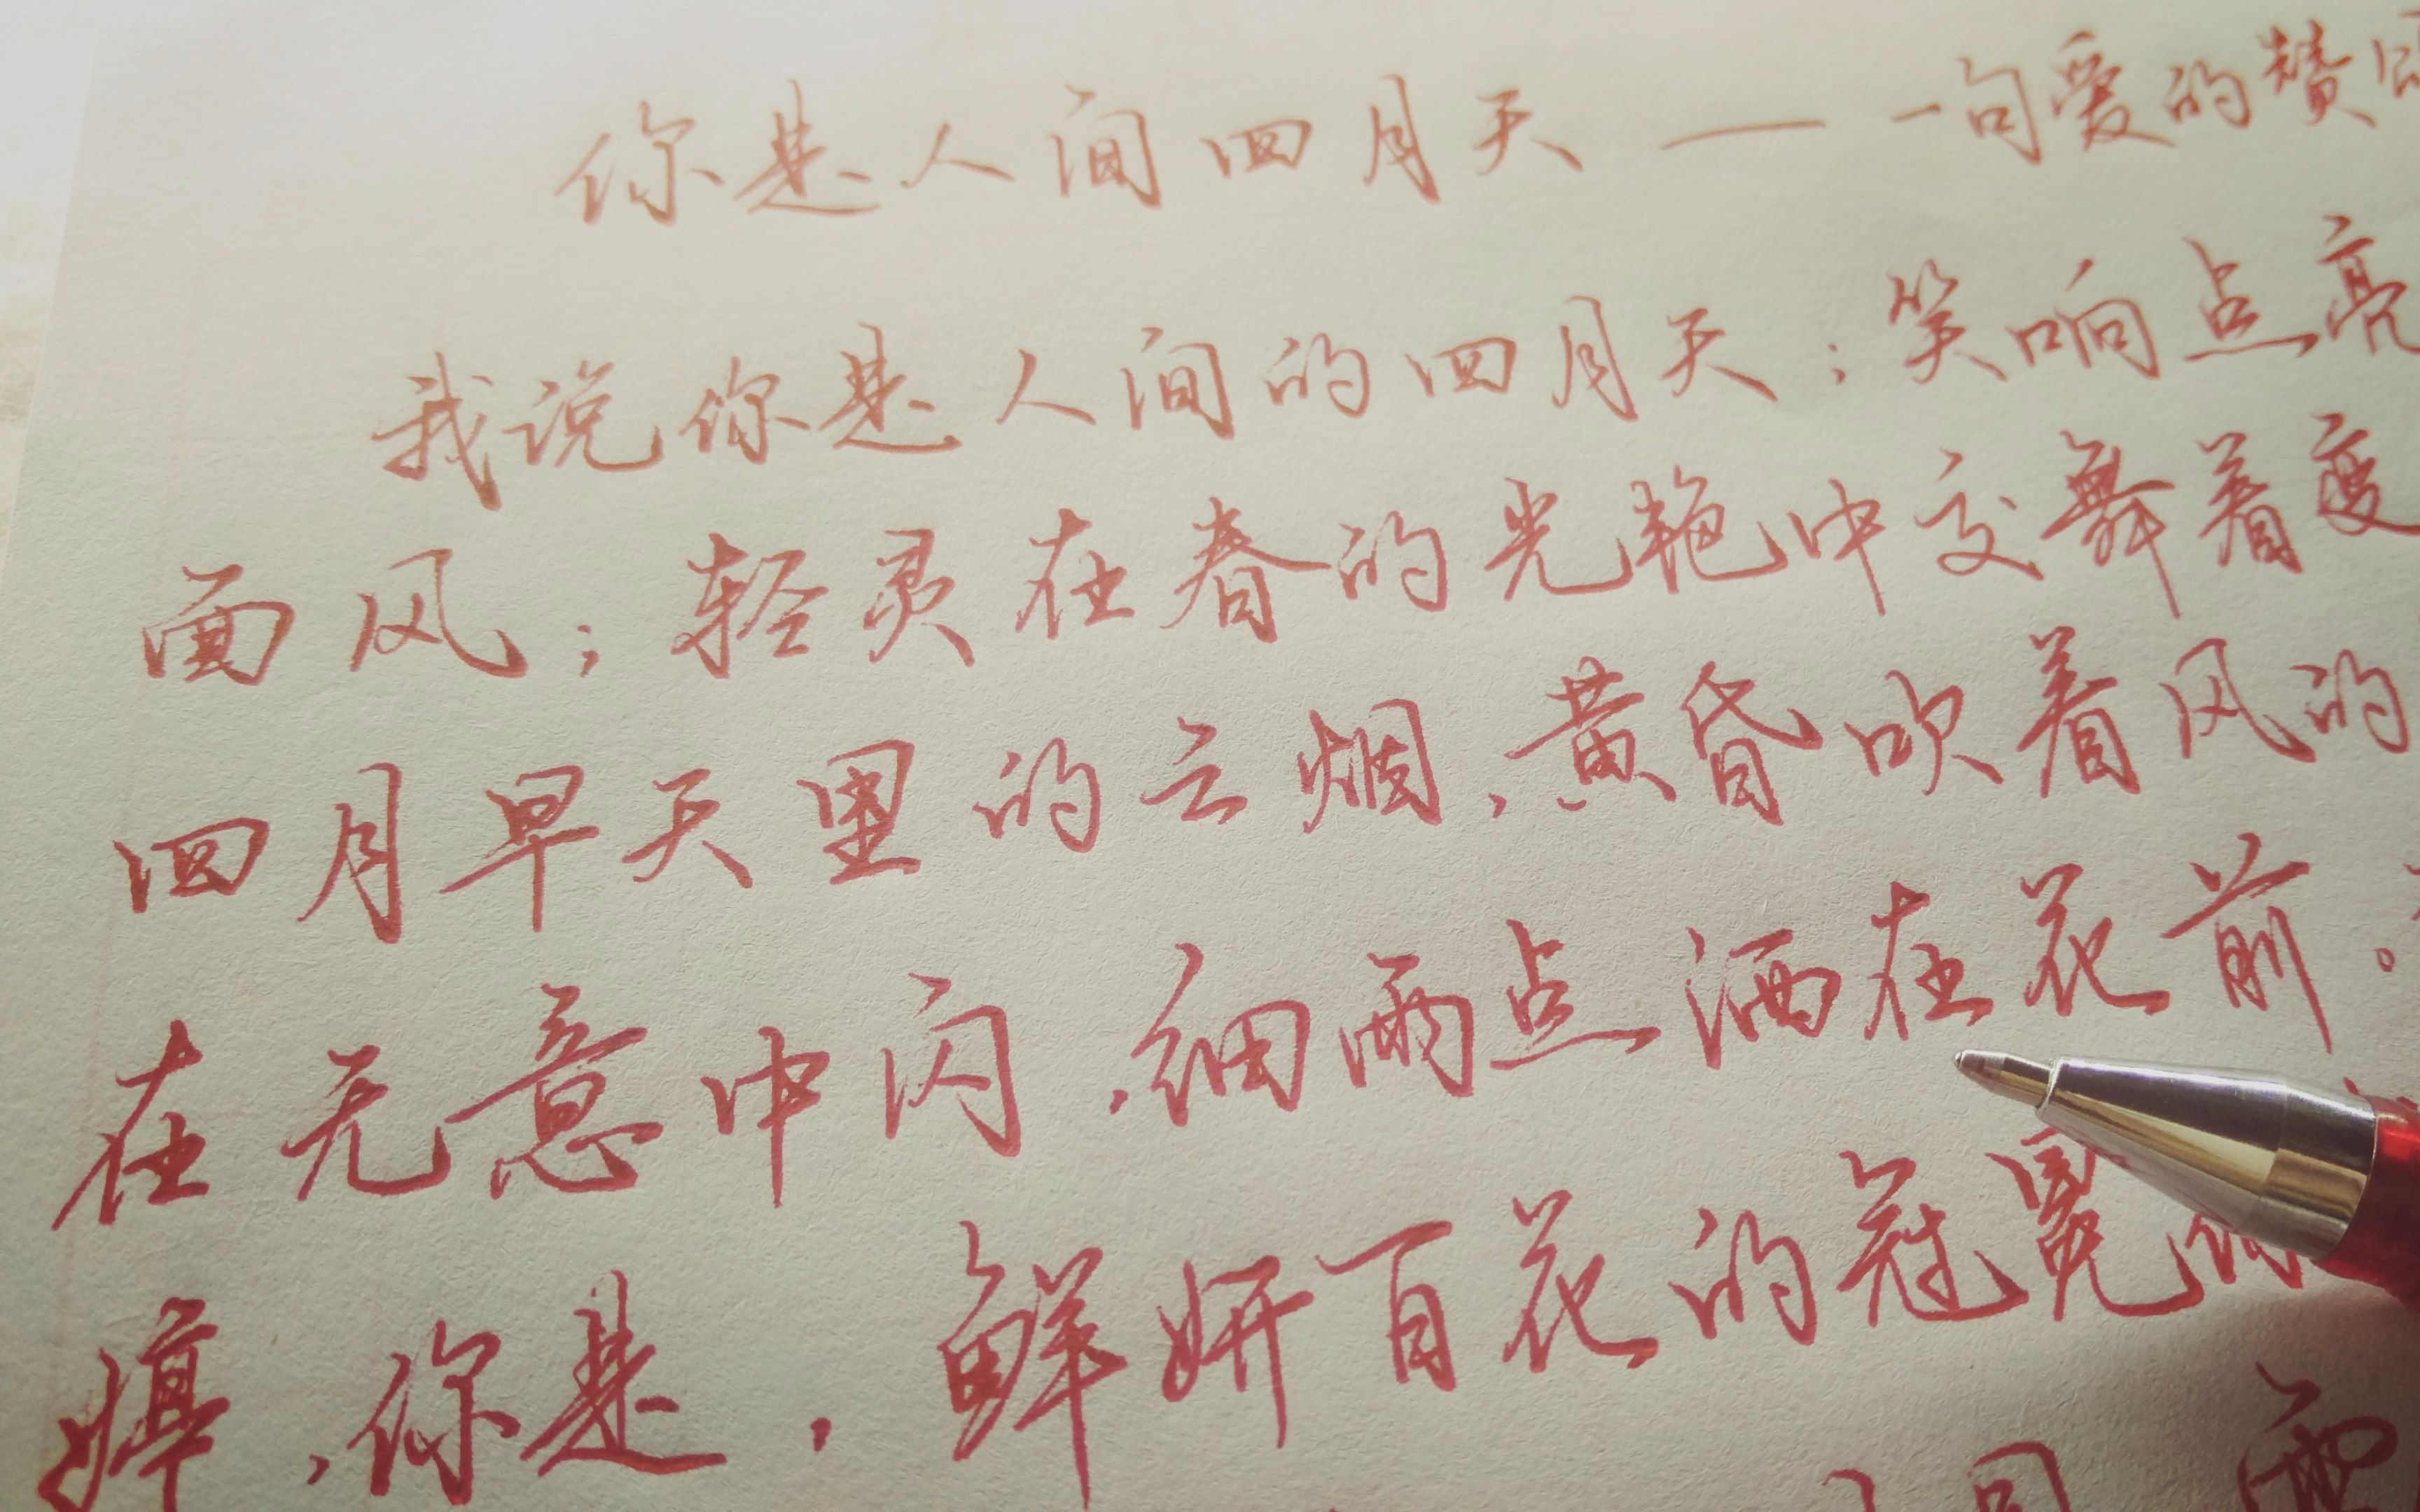 你是人间四月天 — 一句爱的赞
我说你是人间的四月天；笑响点亮
面风；轻灵在春的光艳中交舞着变
四月早天里的云烟，黄昏吹着风的
在无意中闪，细雨点洒在花前。
婷，你是，鲜妍百花的冠冕你